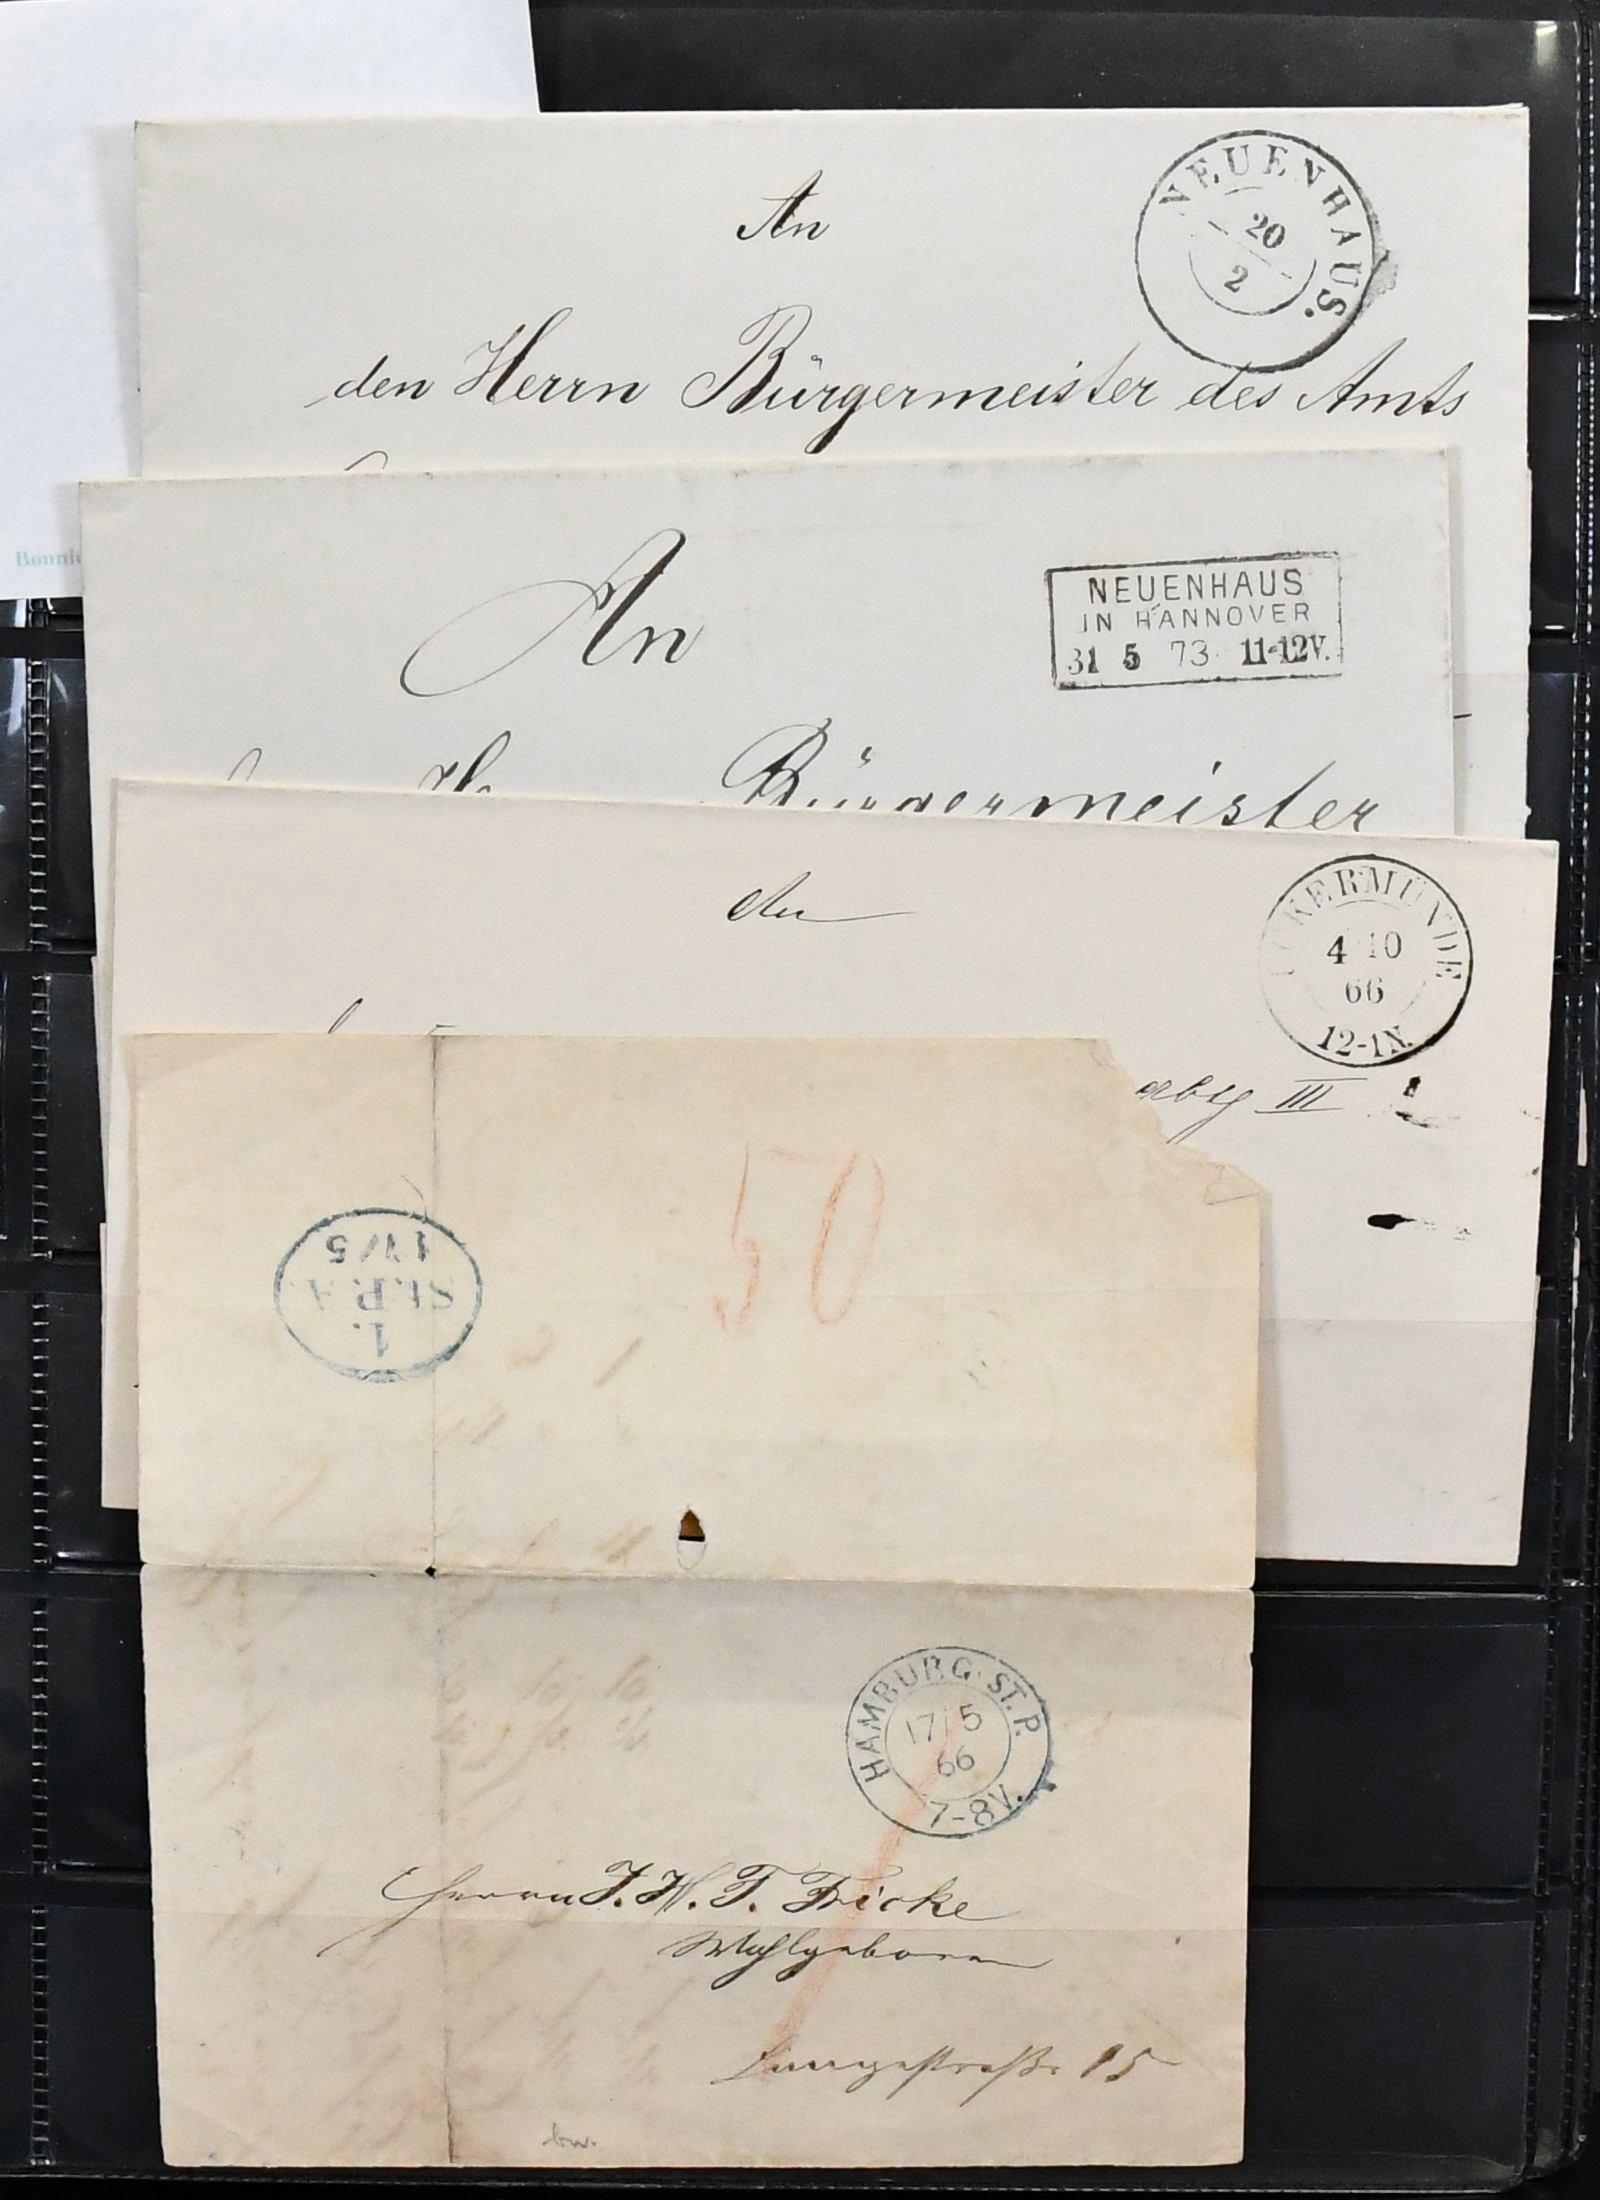 An
NEUENHAUS.
20
2
den Herrn Bürgermeister des Amts
An
NEUENHAUS
IN HANNOVER
31 5 73 11-12V.
Bürgermeister
An
UCKERMÜNDE
4 10
66
12-1N.
III
50
1.
St.P.A.
17/5
HAMBURG ST. P.
17/5
66
7-8V.
Herrn J. H. T. Fricke
Wohlgeboren
Langestraße 15
bw.